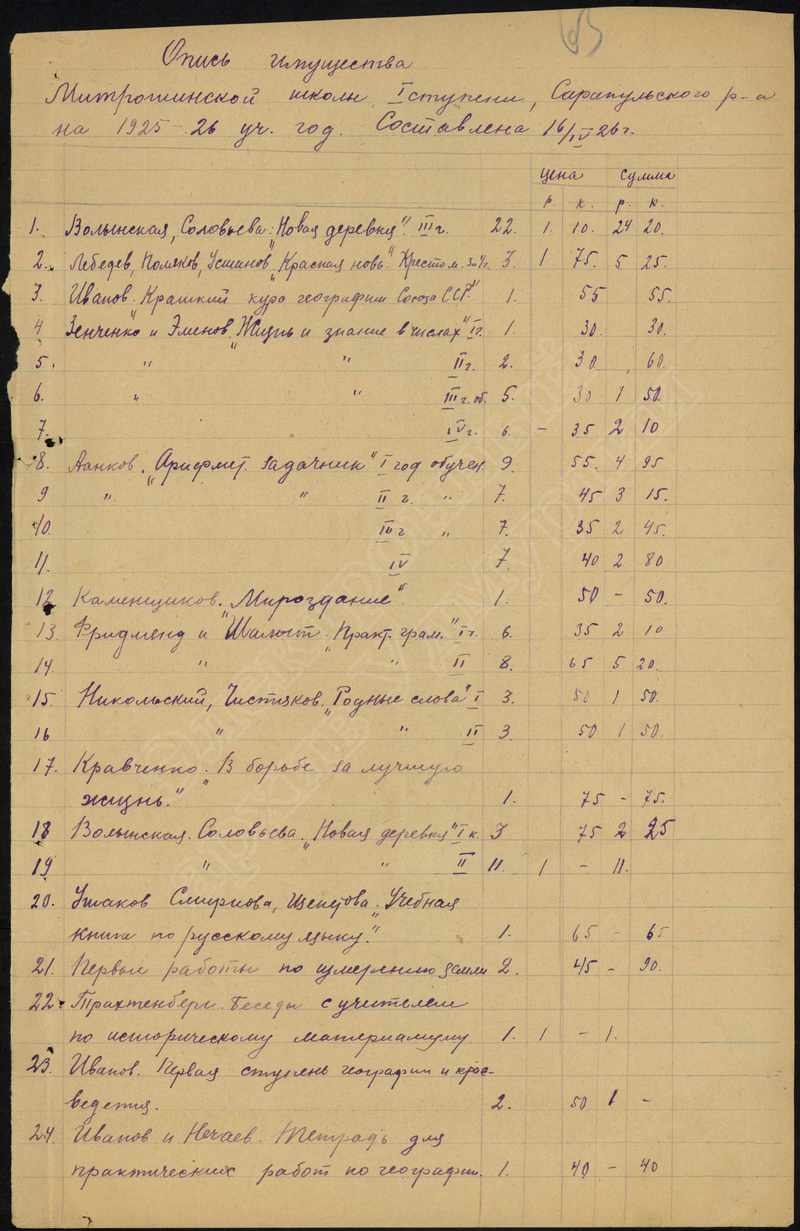 63
Опись имущества
Митрошинской школы I ступени, Сарапульского р-а
на 1925-26 уч. год. Составлена 16/IV 26 г.
цена сумма
р к. р. к.
1. Волынская, Соловьева: "Новая деревня". III г. 22. 1. 10. 24 20.
2. Лебедев, Поляков, Устинов "Красная новь" Хрестом. 3. 1 75. 5 25.
3. Иванов. "Краткий курс географии Союза ССР" 1. 55 55.
4 Зенченко и Эменов. "Жизнь и знание в числах" I г. 1. 30. 30.
5. " " II г. 2. 30 60.
6. " " III г. об. 5. 30 1 50.
7. IV г. 6. - 35 2 10
8. Ланков. "Арифмет. задачник" I год обучен. 9. 55. 4 95
9 " " II г. " 7. 45 3 15.
10. III г " 7. 35 2 45.
11. IV 7. 40 2 80
12 Каменщиков. "Мироздание". 1. 50 - 50.
13. Фридленд и Шалыт. "Практ. грам." I г. 6. 35 2 10
14. " " II 8. 65 5 20.
15. Никольский, Чистяков. "Родные слова" I 3. 50 1 50.
16 " " II 3. 50 1 50.
17. Кравченко. "В борьбе за лучшую
жизнь." 1. 75 - 75.
18 Волынская. Соловьева. "Новая деревня" I к. 3 75 2 25
19 " " II 11. 1 - 11.
20. Ушаков Смирнова, Щепетова. "Учебная
книга по русскому языку." 1. 65 - 65
21. Первые работы по измерению земли 2. 45 - 90.
22. Трахтенберг. Беседы с учителем
по историческому материализму 1. 1 - 1.
23. Иванов. Первая ступень географии и крае-
ведения. 2. 50 1 -
24. Иванов и Нечаев. Тетрадь для
практических работ по географии. 1. 40 - 40